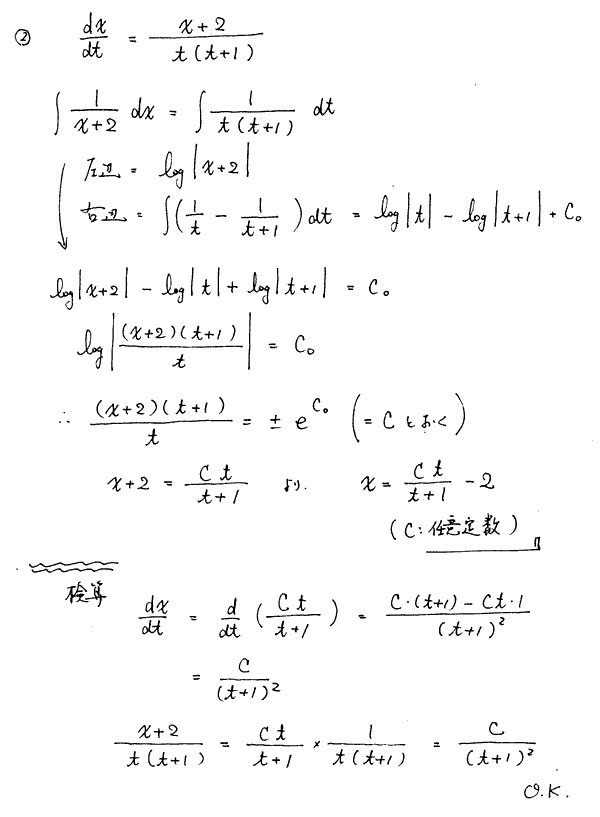 ② dx/dt = (x+2)/(t(t+1))
∫ 1/(x+2) dx = ∫ 1/(t(t+1)) dt
左辺 = log|x+2|
右辺 = ∫(1/t - 1/(t+1))dt = log|t| - log|t+1| + C₀
log|x+2| - log|t| + log|t+1| = C₀
log|(x+2)(t+1)/t| = C₀
∴ (x+2)(t+1)/t = ± e^C₀ (= C とおく)
x+2 = Ct/(t+1) より. x = Ct/(t+1) - 2
(C:任意定数)
検算
dx/dt = d/dt (Ct/(t+1)) = (C·(t+1) - Ct·1)/(t+1)²
= C/(t+1)²
(x+2)/(t(t+1)) = Ct/(t+1) × 1/(t(t+1)) = C/(t+1)²
O.K.